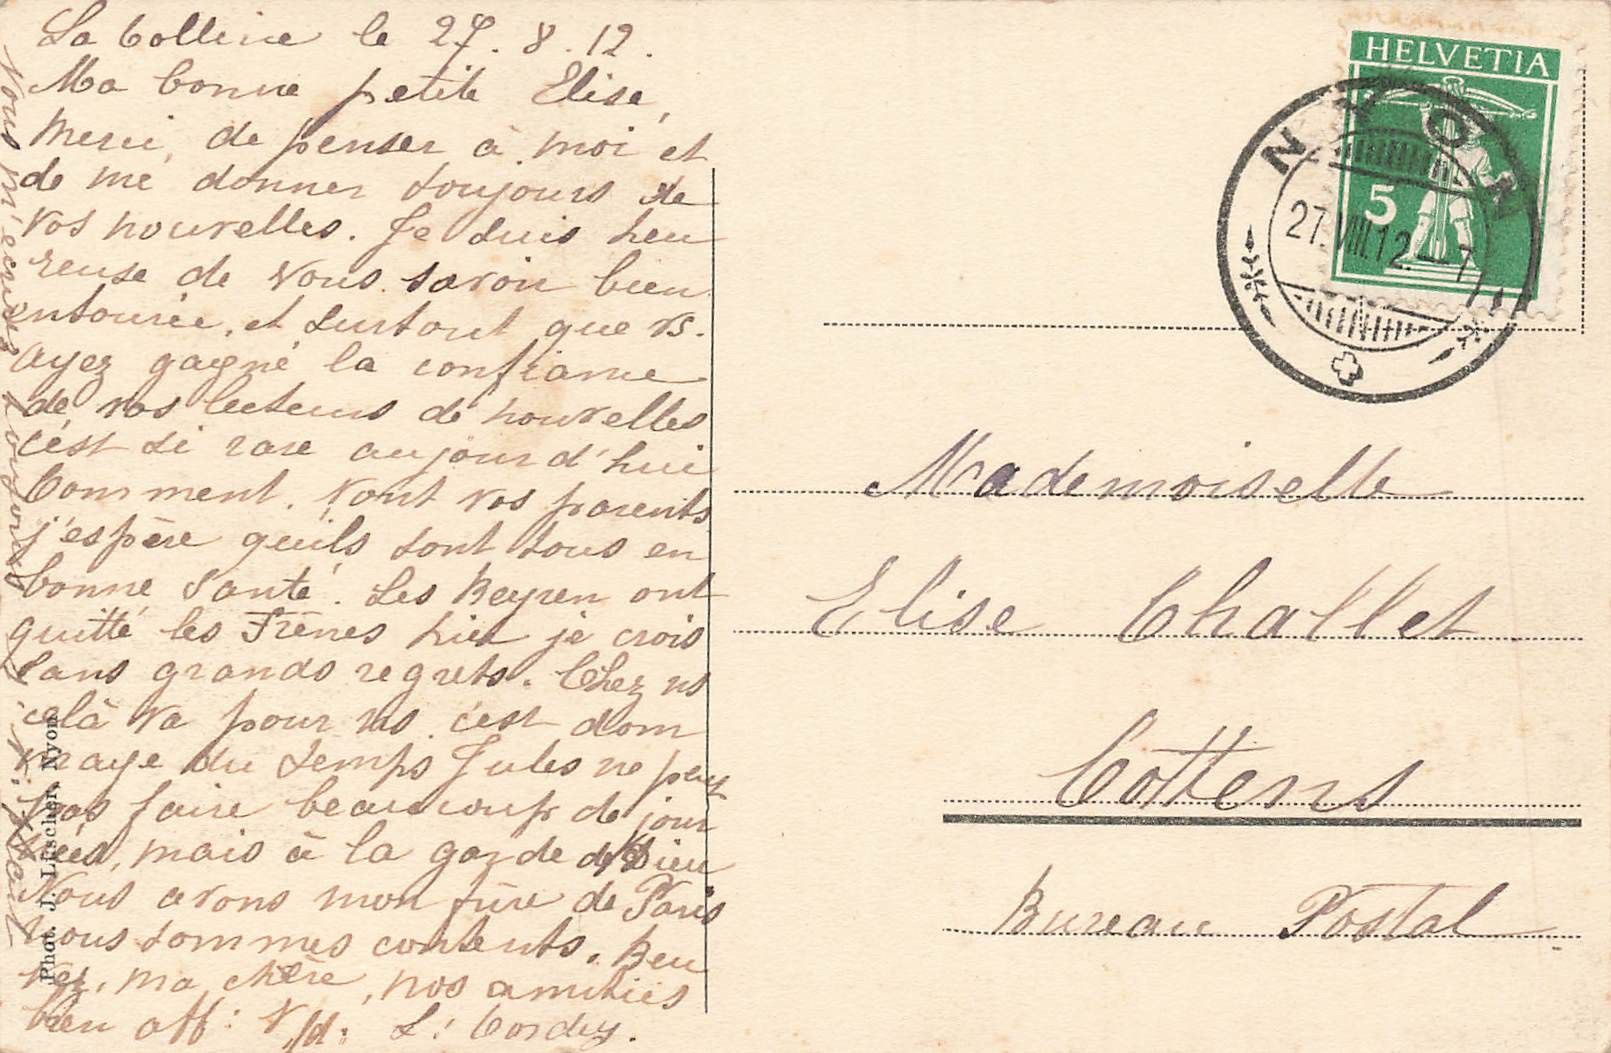 La Colline le 27. 8. 12.
Ma bonne petite Elise,
Merci, de penser à moi et
de me donner toujours de
vos nouvelles. Je suis heu
reuse de vous savoir bien
entourée, et surtout que vs.
ayez gagné la confiance
de vos lecteurs de nouvelles
c'est si rare aujourd'hui
Comment vont vos parents
j'espère qu'ils sont tous en
bonne santé. Les Reyren ont
quitté les Frênes hier je crois
sans grands regrets. Chez ns
celà va pour ns c'est dom
mage du temps Jules ne peut
pas faire beaucoup de jour
nées, mais à la garde de Dieu
Nous avons mon frère de Paris
nous sommes contents. Rece
vez, ma chère, nos amitiés
bien aff: L: Cordey.
Vous m'écrivez toujours
Phot. J. Lüscher, Nyon
HELVETIA
5
NYON
27.VIII.12.—7
Mademoiselle
Elise Challet
Cottens
Bureau Postal